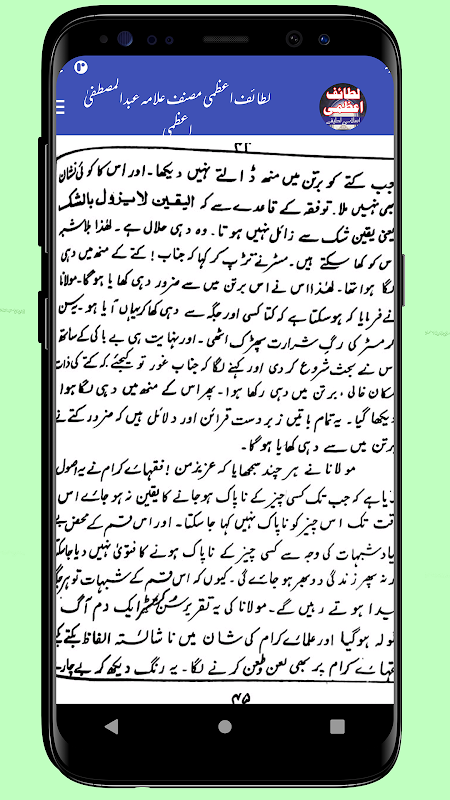 لطائف اعظمی مصنف علامہ عبدالمصطفیٰ
اعظمی
لطائف
اعظمی
جب کتے کو برتن میں منھ ڈالتے نہیں دیکھا۔ اور اس کا کوئی نشان
بھی نہیں ملا۔ تو فقہ کے قاعدے سے کہ الیقین لایزول بالشک
یعنی یقین شک سے زائل نہیں ہوتا۔ وہ دہی حلال ہے۔ لھٰذا بلاشبہ
اس کو کھا سکتے ہیں۔ مسٹر نے تڑپ کر کہا کہ جناب! کتے کے منھ میں دہی
لگا ہوا تھا۔ لھٰذا اس نے اس برتن میں سے ضرور دہی کھایا ہوگا۔ مولانا
نے فرمایا کہ ہوسکتا ہے کہ کتا کسی اور جگہ سے دہی کھا کر یہاں آیا ہو۔ یہ سن
کر مسٹر کی رگِ شرارت پھڑک اٹھی۔ اور نہایت ہی بے باکی کے ساتھ
س نے بحث شروع کردی اور کہنے لگا کہ جناب غور تو کیجئے کہ کتے کی ذات
مکان خالی، برتن میں دہی رکھا ہوا۔ پھر اس کے منھ میں دہی لگا ہوا
دیکھا گیا۔ یہ تمام باتیں زبردست قرائن اور دلائل ہیں کہ ضرور کتے نے
برتن میں سے دہی کھایا ہوگا۔
مولانا نے ہر چند سمجھایا کہ عزیز من! فقہائے کرام نے یہ اصول
دیا ہے کہ جب تک کسی چیز کے ناپاک ہوجانے کا یقین نہ ہوجائے اس
وقت تک اس چیز کو ناپاک نہیں کہا جاسکتا۔ اور اس قسم کے محض بے
یاد شبہات کی وجہ سے کسی چیز کے ناپاک ہونے کا فتویٰ نہیں دیا جاسکتا
ورنہ پھر زندگی دوبھر ہوجائے گی۔ کیوں کہ اس قسم کے شبہات تو ہر جگہ
پیدا ہوتے رہیں گے۔ مولانا کی یہ تقریر سن کر مسٹر ایک دم آگ
گولہ ہوگیا اور علمائے کرام کی شان میں ناشائستہ الفاظ بکتے بکتے
فقہائے کرام پر بھی لعن و طعن کرنے لگا۔ یہ رنگ دیکھ کر بے چارے
۴۵